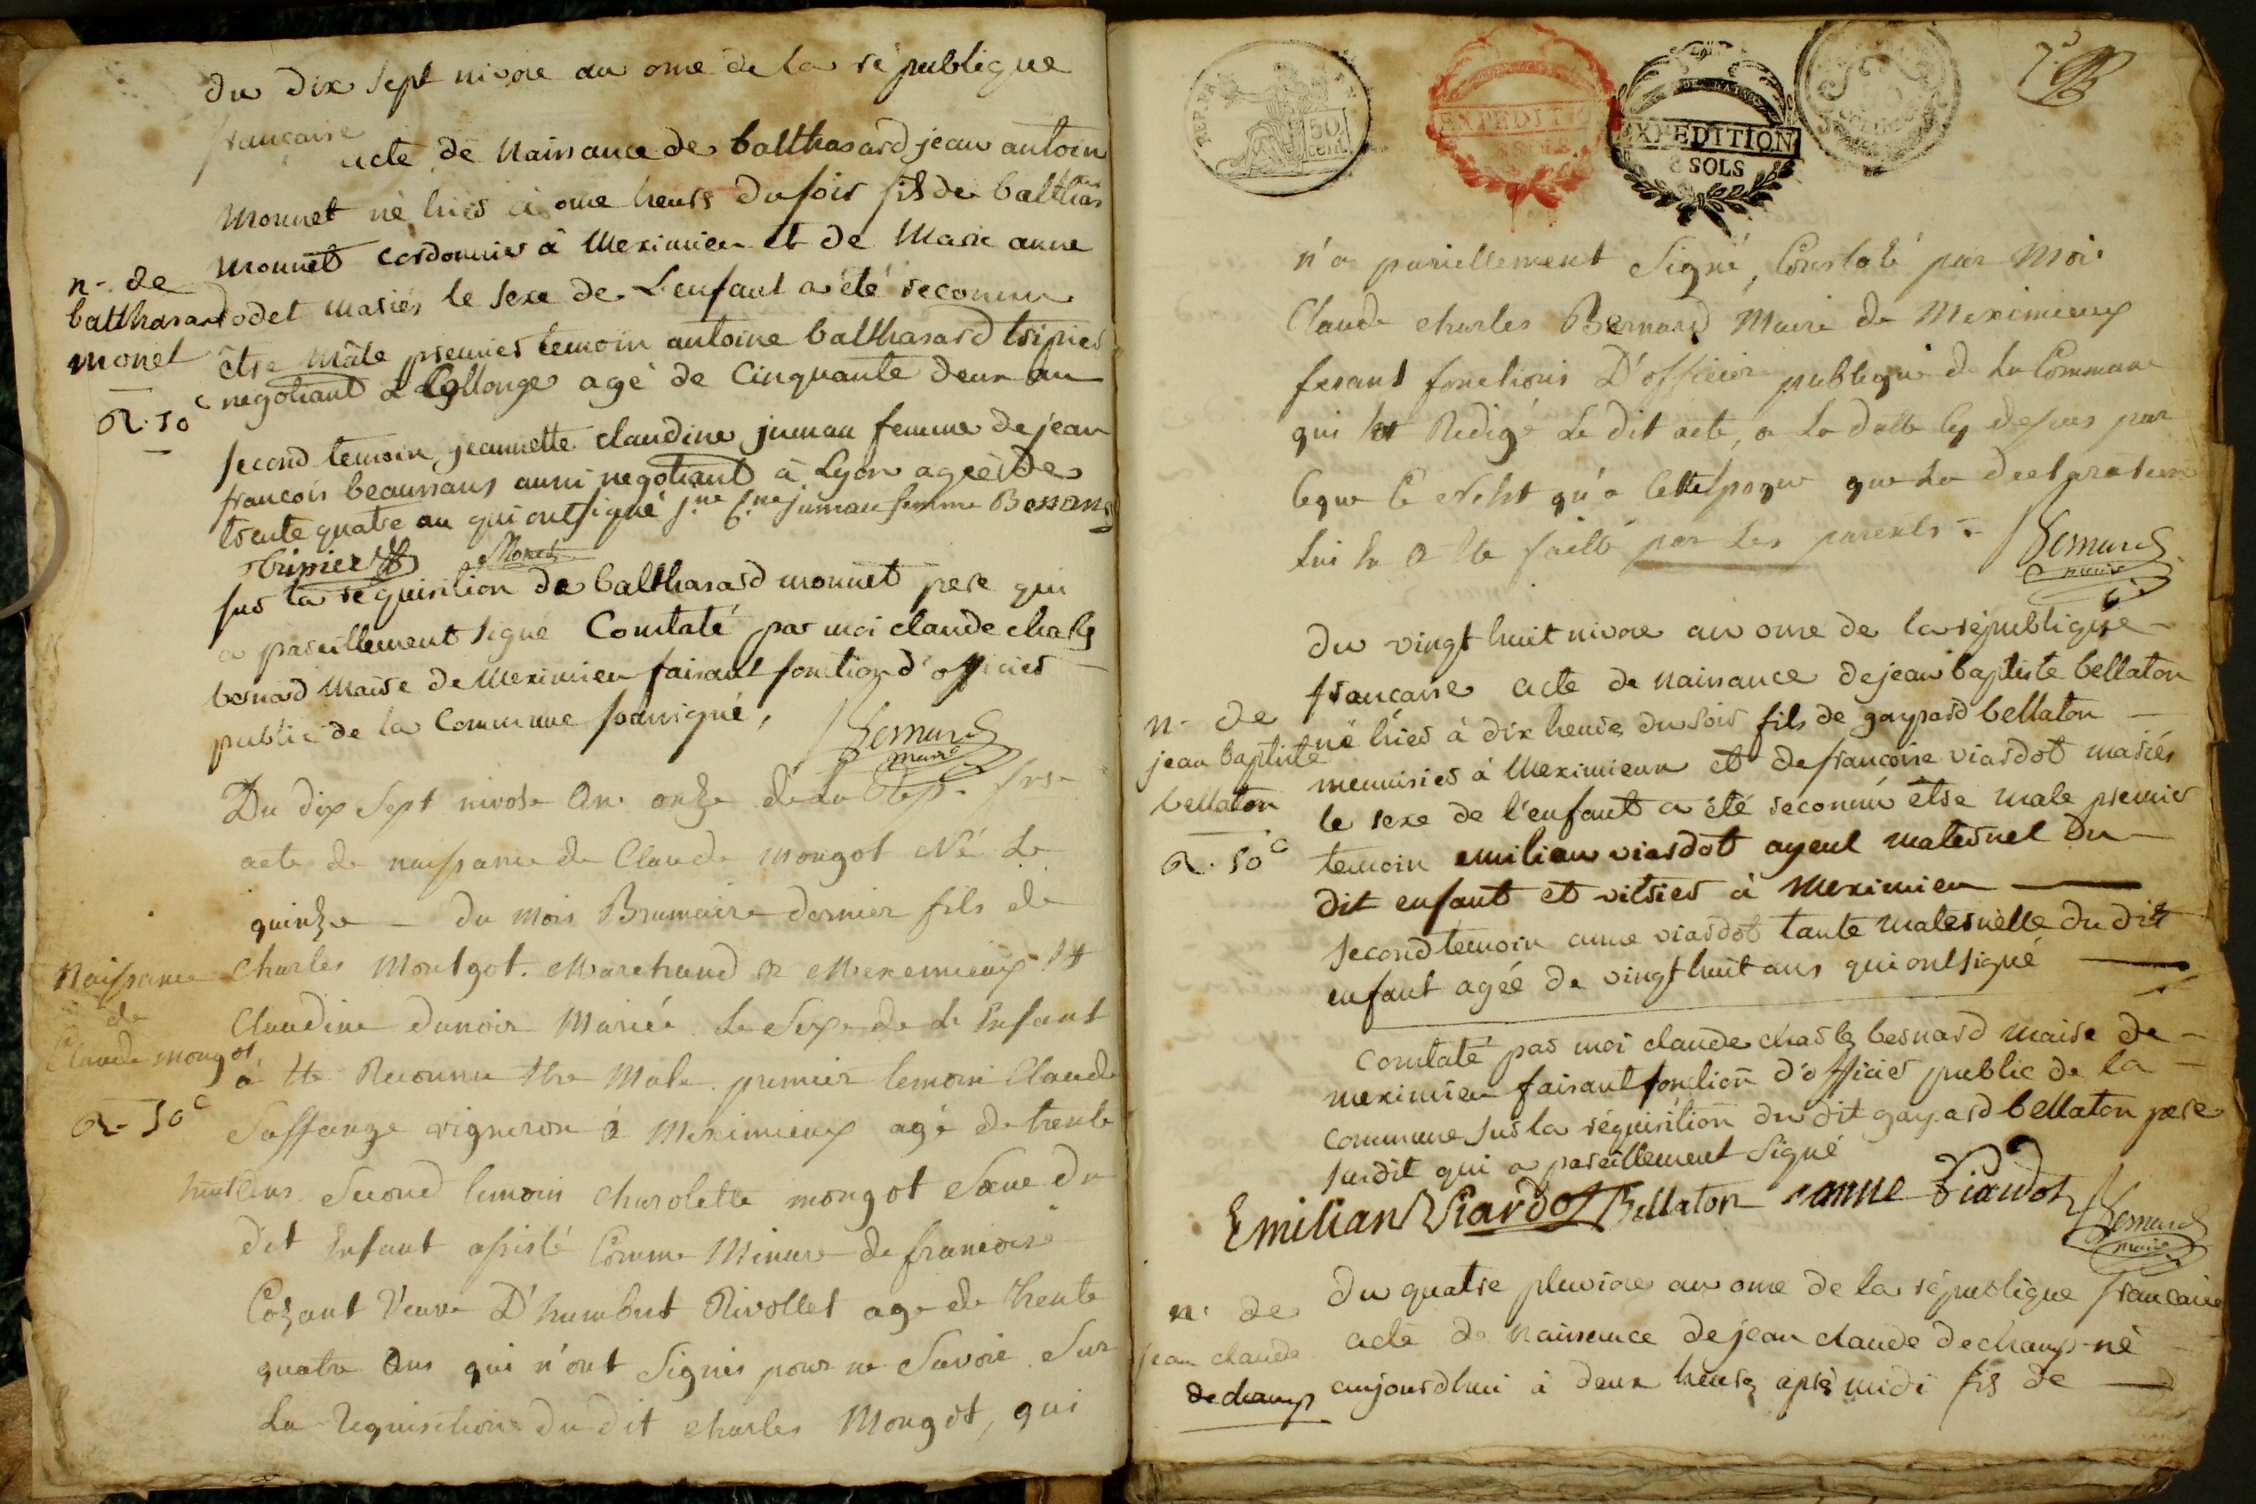 du dix sept nivose an onze de la république
française
acte de Naissance de balthasard jean antoin
Monnet né hier à onze heurs du soir fils de balthas
Monnet cordonnier à Meximieu et de Marie anne
n. de
balthasard
monet
R. 50 c
odet mariés le sexe de L'enfant a été reconnu
être Mâle premier temoin antoine balthasard tripier
negotiant à Collonge agé de Cinquante deux an
second temoin jeannette claudine juman femme de jean
francois beaussans aussi negotiant à Lyon agée de
trente quatre an qui ont signé j.ne C.ne juman femme Bessans
tripier Monet
sur la réquisition de balthasard monnet pere qui
a pareillement signe Constaté par moi claude charles
bernard Maire de Meximieu faisant fonction d'officier
public de la Commune soussigné,
Bernard
maire
Du dix Sept nivose An onze de La Rep. frse
acte de naissance de Claude Mongot Né Le
quinze du Mois Brumaire dernier fils de
Naissance
de
Claude Mongot
R. 50 c
Charles Montgot Marchand a Meximieux Et
Claudine dunoir Mariée Le Sexe de L'Enfant
a Ete Reconnu Etre Male premier temoin Claude
vigneron à Meximieux agé de trente
huit ans Second temoin Charolette Mongot Sœur du
dit Enfant assisté Comme Mineure de francoise
Cozant Veuve D'humbert Rivollet age de trente
quatre Ans qui n'ont Signés pour ne Savoir Sur
La Requisition du dit Charles Mongot, qui
REP. FRA.
50
cent.
EXPEDITION
8 SOLS
EXPEDITION
8 SOLS
n'a pariellement Signé, Constaté par Moi
Claude Charles Bernard Maire de Meximieux
fesant fonctions D'officier publique de La Commune
qui Redigé Le dit acte, a La datte cy dessus par
ceque Ce N'est qu'a Cette Epoque que La declaration
lui En a Ete faitte par Les parents.
Bernard
maire
du vingt huit nivose an onze de la république
française acte de naissance de jean baptiste bellaton
n. de
jean baptiste
bellaton
R. 50 c
né hier à dix heures du soir fils de gaspard bellaton
menuisier à Meximieux et de françoise viardot mariés
le sexe de l'enfant a été reconnu être male premier
temoin emilian viardot ayeul maternel du
dit enfant et vitrier à Meximieu
second témoin anne viardot tante maternelle du dit
enfant agée de vingt huit ans qui ont signé
Constaté par moi claude charles bernard maire de
meximieu faisant fonction d'officier public de la
commune sur la réquisition du dit gaspard bellaton pere
susdit qui a pareillement signé
Emilian Viardot Bellaton anne Viardot
Bernard
maire
du quatre pluviose an onze de la république francaise
n. de
jean claude
dechamp
acte de naissance de jean claude dechamp né
aujourdhui à deux heures après midi fils de